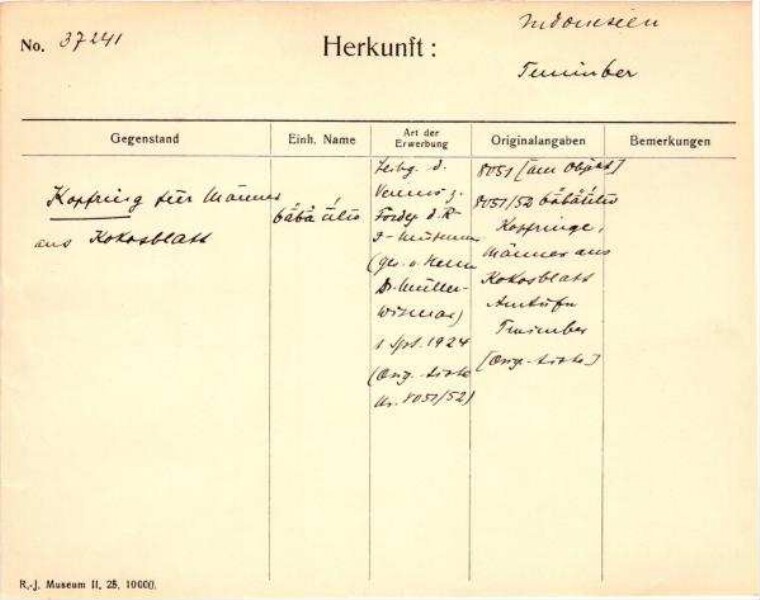 No. 37241
Herkunft:
Indonesien
Timimber
Gegenstand
Einh. Name
Art der Erwerbung
Originalangaben
Bemerkungen
Kopfring für Männer
aus Kokosblatt
Leihg. d.
Vereins z.
Förder d. R-
J-Museums
(ges. v. Herrn
Dr. Müller-
Wismar)
1 Spt. 1924
(Orig.-Liste
Nr. 8051/52)
8051 [am Objekt]
8051/52
Kopfringe,
Männer aus
Kokosblatt
Timimber
[Orig.-Liste]
R.-J. Museum II. 25. 10000.